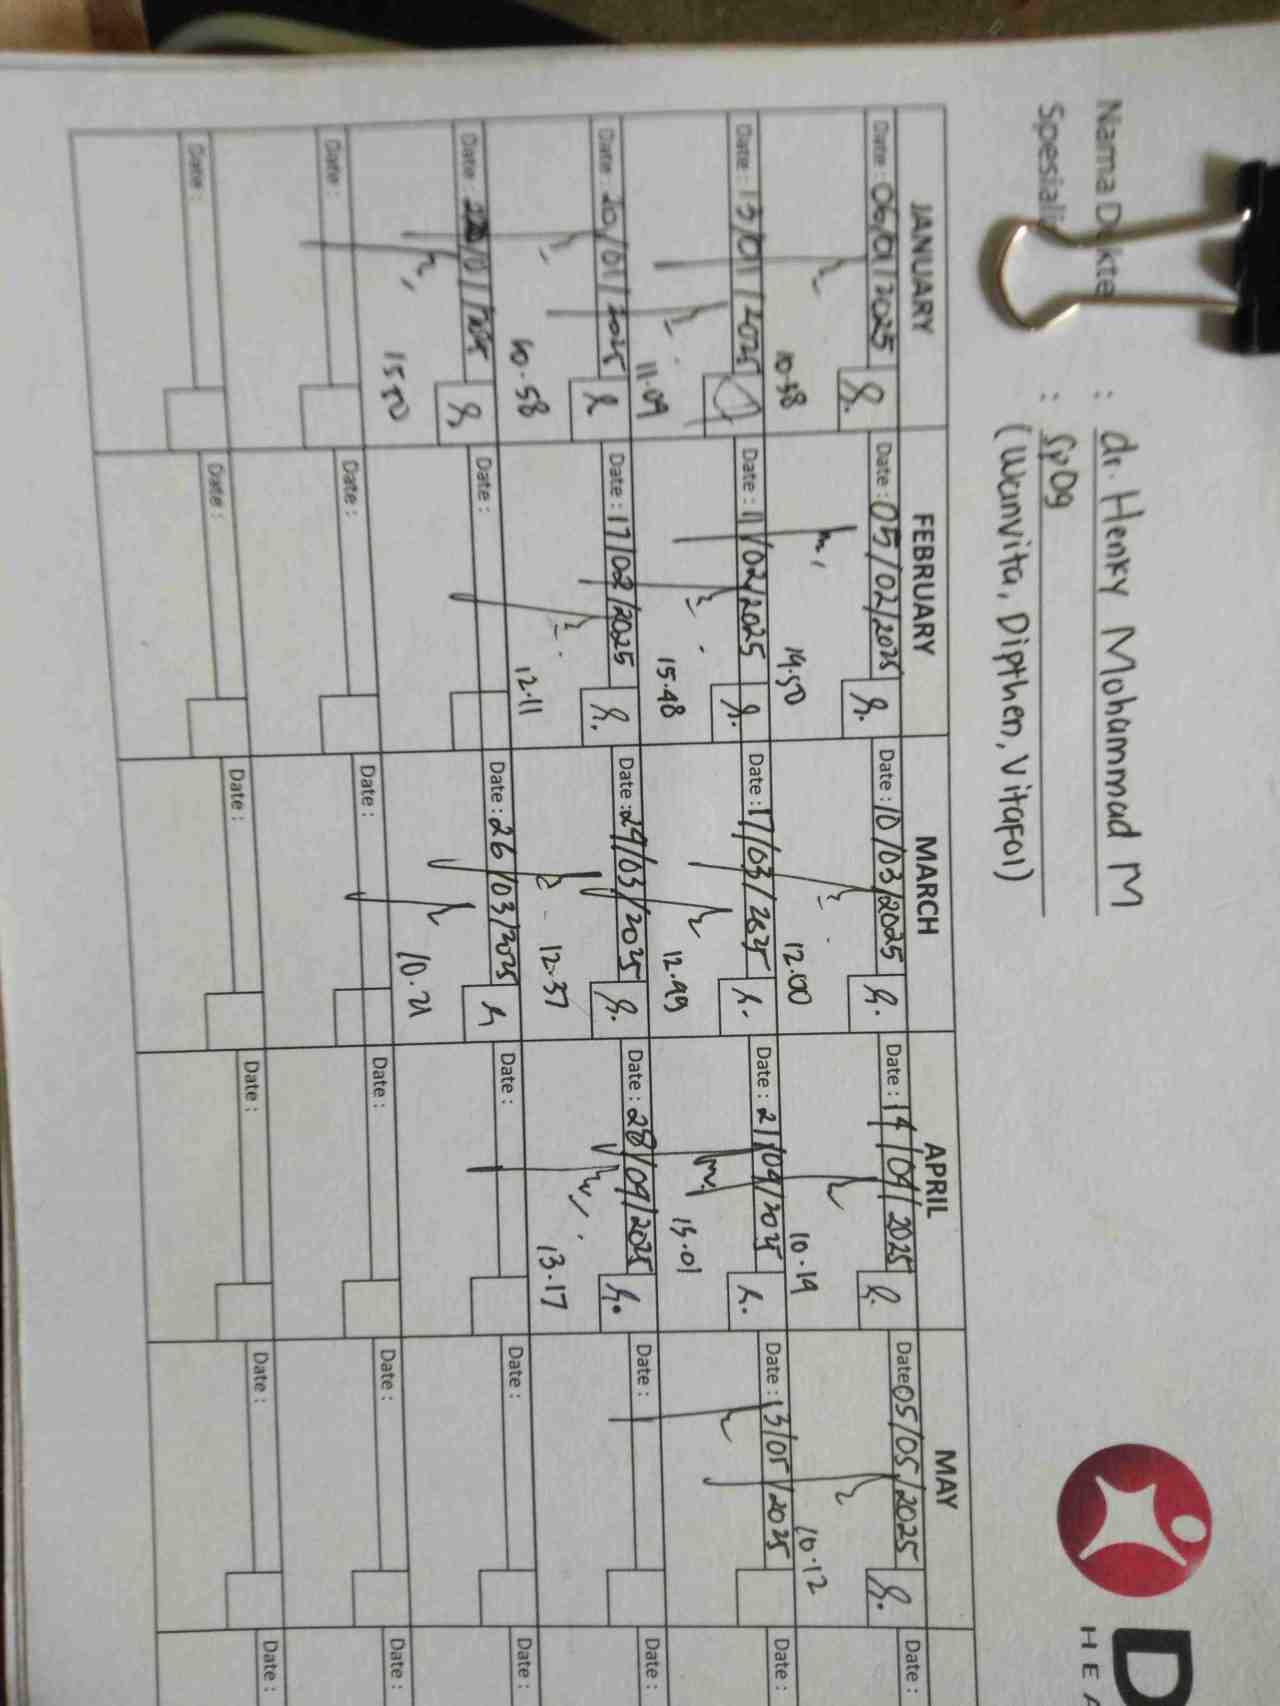 Nama Dokte : dr. Henky Mohammad M
Spesiali : SpOg
(Wanvita, Dipthen, Vitafol)
D
HEA
JANUARY FEBRUARY MARCH APRIL MAY
Date : 06/01/2025 Date : 05/02/2025 Date : 10/03/2025 Date : 14/04/2025 Date 05/05/2025 Date :
10.48 14.50 12.00 10.14 10.12
Date : 13/01/2025 Date : 11/02/2025 Date : 17/03/2025 Date : 21/04/2025 Date : 13/05/2025 Date :
11.09 15.48 12.49 15.01
Date : 20/01/2025 Date : 17/02/2025 Date : 24/03/2025 Date : 28/04/2025 Date : Date :
10.58 12.11 12.37 13.17
Date : Date : Date : 26/03/2025 Date : Date : Date :
10.21
Date : Date : Date : Date : Date : Date :
Date : Date : Date : Date : Date : Date :